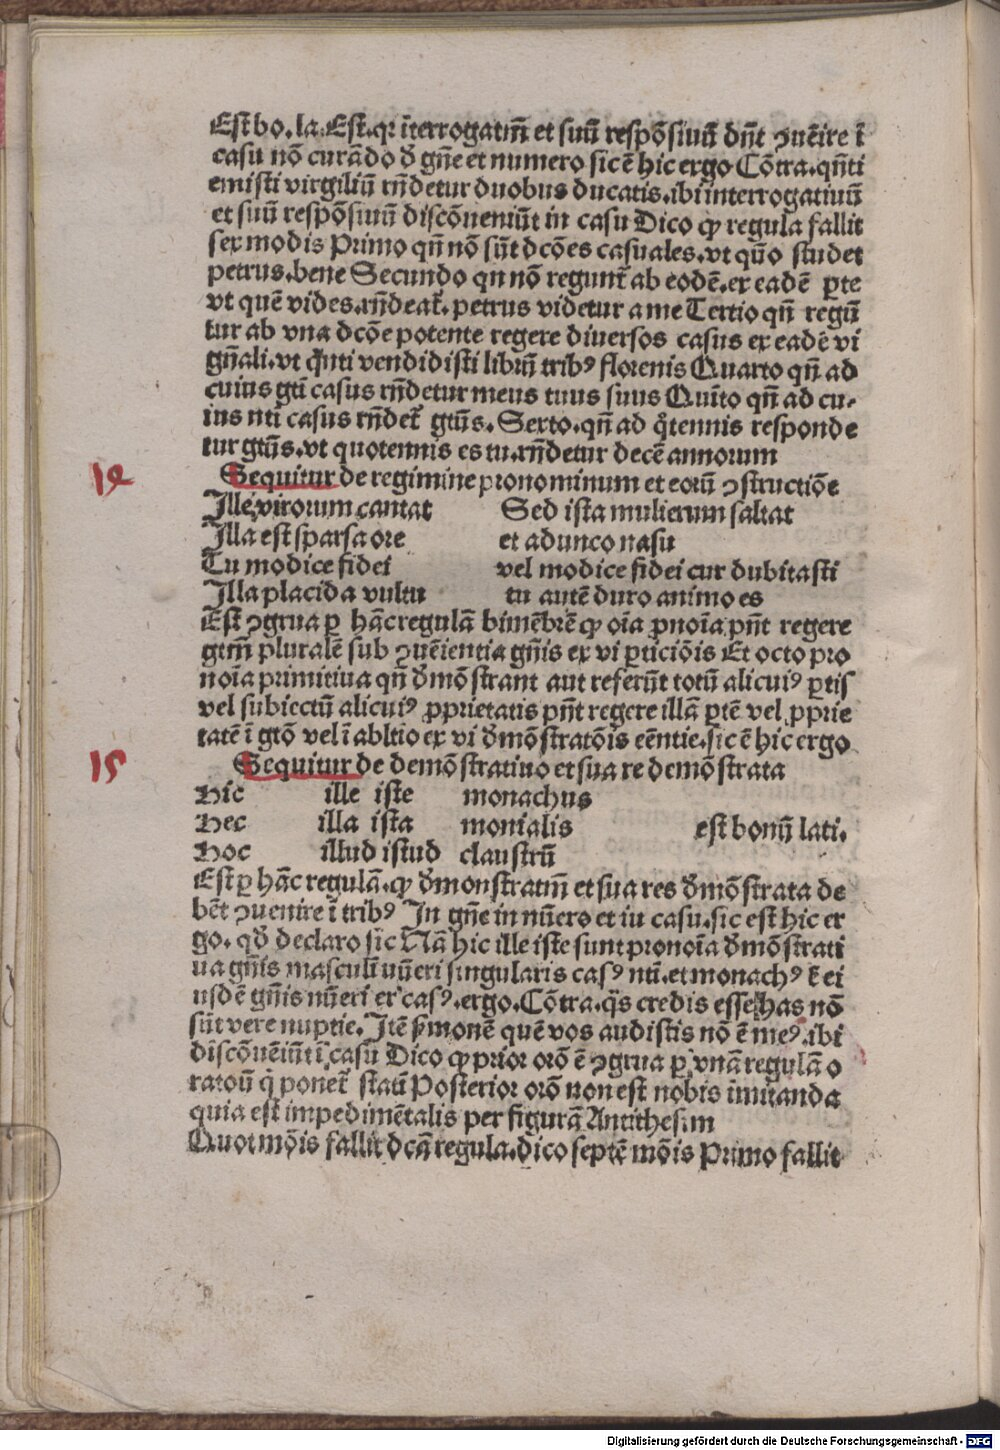 Est bo. la. Est. qꝛ īterrogatiuū et suū respōsiuū dn̄t ↄuēire ī
casu nō curādo đ gn̄e et numero sic ē hic ergo Cōtra. qn̄ti
emisti virgiliū rn̄detur duobus ducatis. ibi interrogatiuū
et suū respōsiuū discōueniūt in casu Dico ꝙ regula fallit
sex modis Primo qn̄ nō sūt dcōes casuales. vt quō studet
petrus. bene Secundo qn nō regunt᷑ ab eodē. ex eadē ꝑte
vt quē vides. rn̄deat᷑. petrus videtur a me Tertio qn̄ regū
tur ab vna dcōe potente regere diuersos casus ex eadē vi
gn̄ali. vt qn̄ti vendidisti librū tribꝰ florenis Quarto qn̄ ad
cuius gtī casus rn̄detur meus tuus suus Quīto qn̄ ad cu-
ius nti casus rn̄det᷑ gtūs. Sexto. qn̄ ad q̄tennis responde
tur gtūs. vt quotennis es tu. rn̄detur decē annorum
14
Sequitur de regimine pronominum et eorū ↄstructiōe
Ille virorum cantat Sed ista mulierum saltat
Illa est sparsa ore et adunco nasu
Tu modice fidei vel modice fidei cur dubitasti
Illa placida vultu tu autē duro animo es
Est ↄgrua ꝑ hāc regulā bimēbrē ꝙ oīa ꝓnoīa pn̄t regere
gtm̄ pluralē sub ↄuēientia gn̄is ex vi ꝑticiōis Et octo pro
noīa primitiua qn̄ đmōstrant aut referūt totū alicuiꝰ ꝑtis
vel subiectū alicuiꝰ ꝓprietatis pn̄t regere illā ꝑtē vel ꝓprie
tatē ī gtō vel ī abltio ex vi đmōstratōis eēntie. sic ē hic ergo
15
Sequitur de demōstratiuo et sua re demōstrata
Hic ille iste monachus
Hec illa ista monialis est bonū lati.
Hoc illud istud claustrū
Est ꝑ hāc regulā. ꝙ đmonstratiuū et sua res đmōstrata de
bēt ↄuenire ī tribꝰ In gn̄e in nūero et iu casu. sic est hic er
go. qđ declaro sic Nā hic ille iste sunt pronoīa đmōstrati
ua gn̄is masculī nūeri singularis casꝰ nti. et monachꝰ ē ei
usdē gn̄is nūeri et casꝰ. ergo. Cōtra. qs̄ credis esse has nō
sūt vere nuptie. Itē ẜmonē quē vos audistis nō ē meꝰ. ibi
discōuēiūt ī casu Dico ꝙ prior orō ē ↄgrua ꝑ vnā regulā o
ratoū q̄ ponet᷑ statī Posterior orō non est nobis imitanda
quia est impedimētalis per figurā Antithesim
Quot mōis fallit dcā regula. dico septē mōis Primo fallit
Digitalisierung gefördert durch die Deutsche Forschungsgemeinschaft - DFG